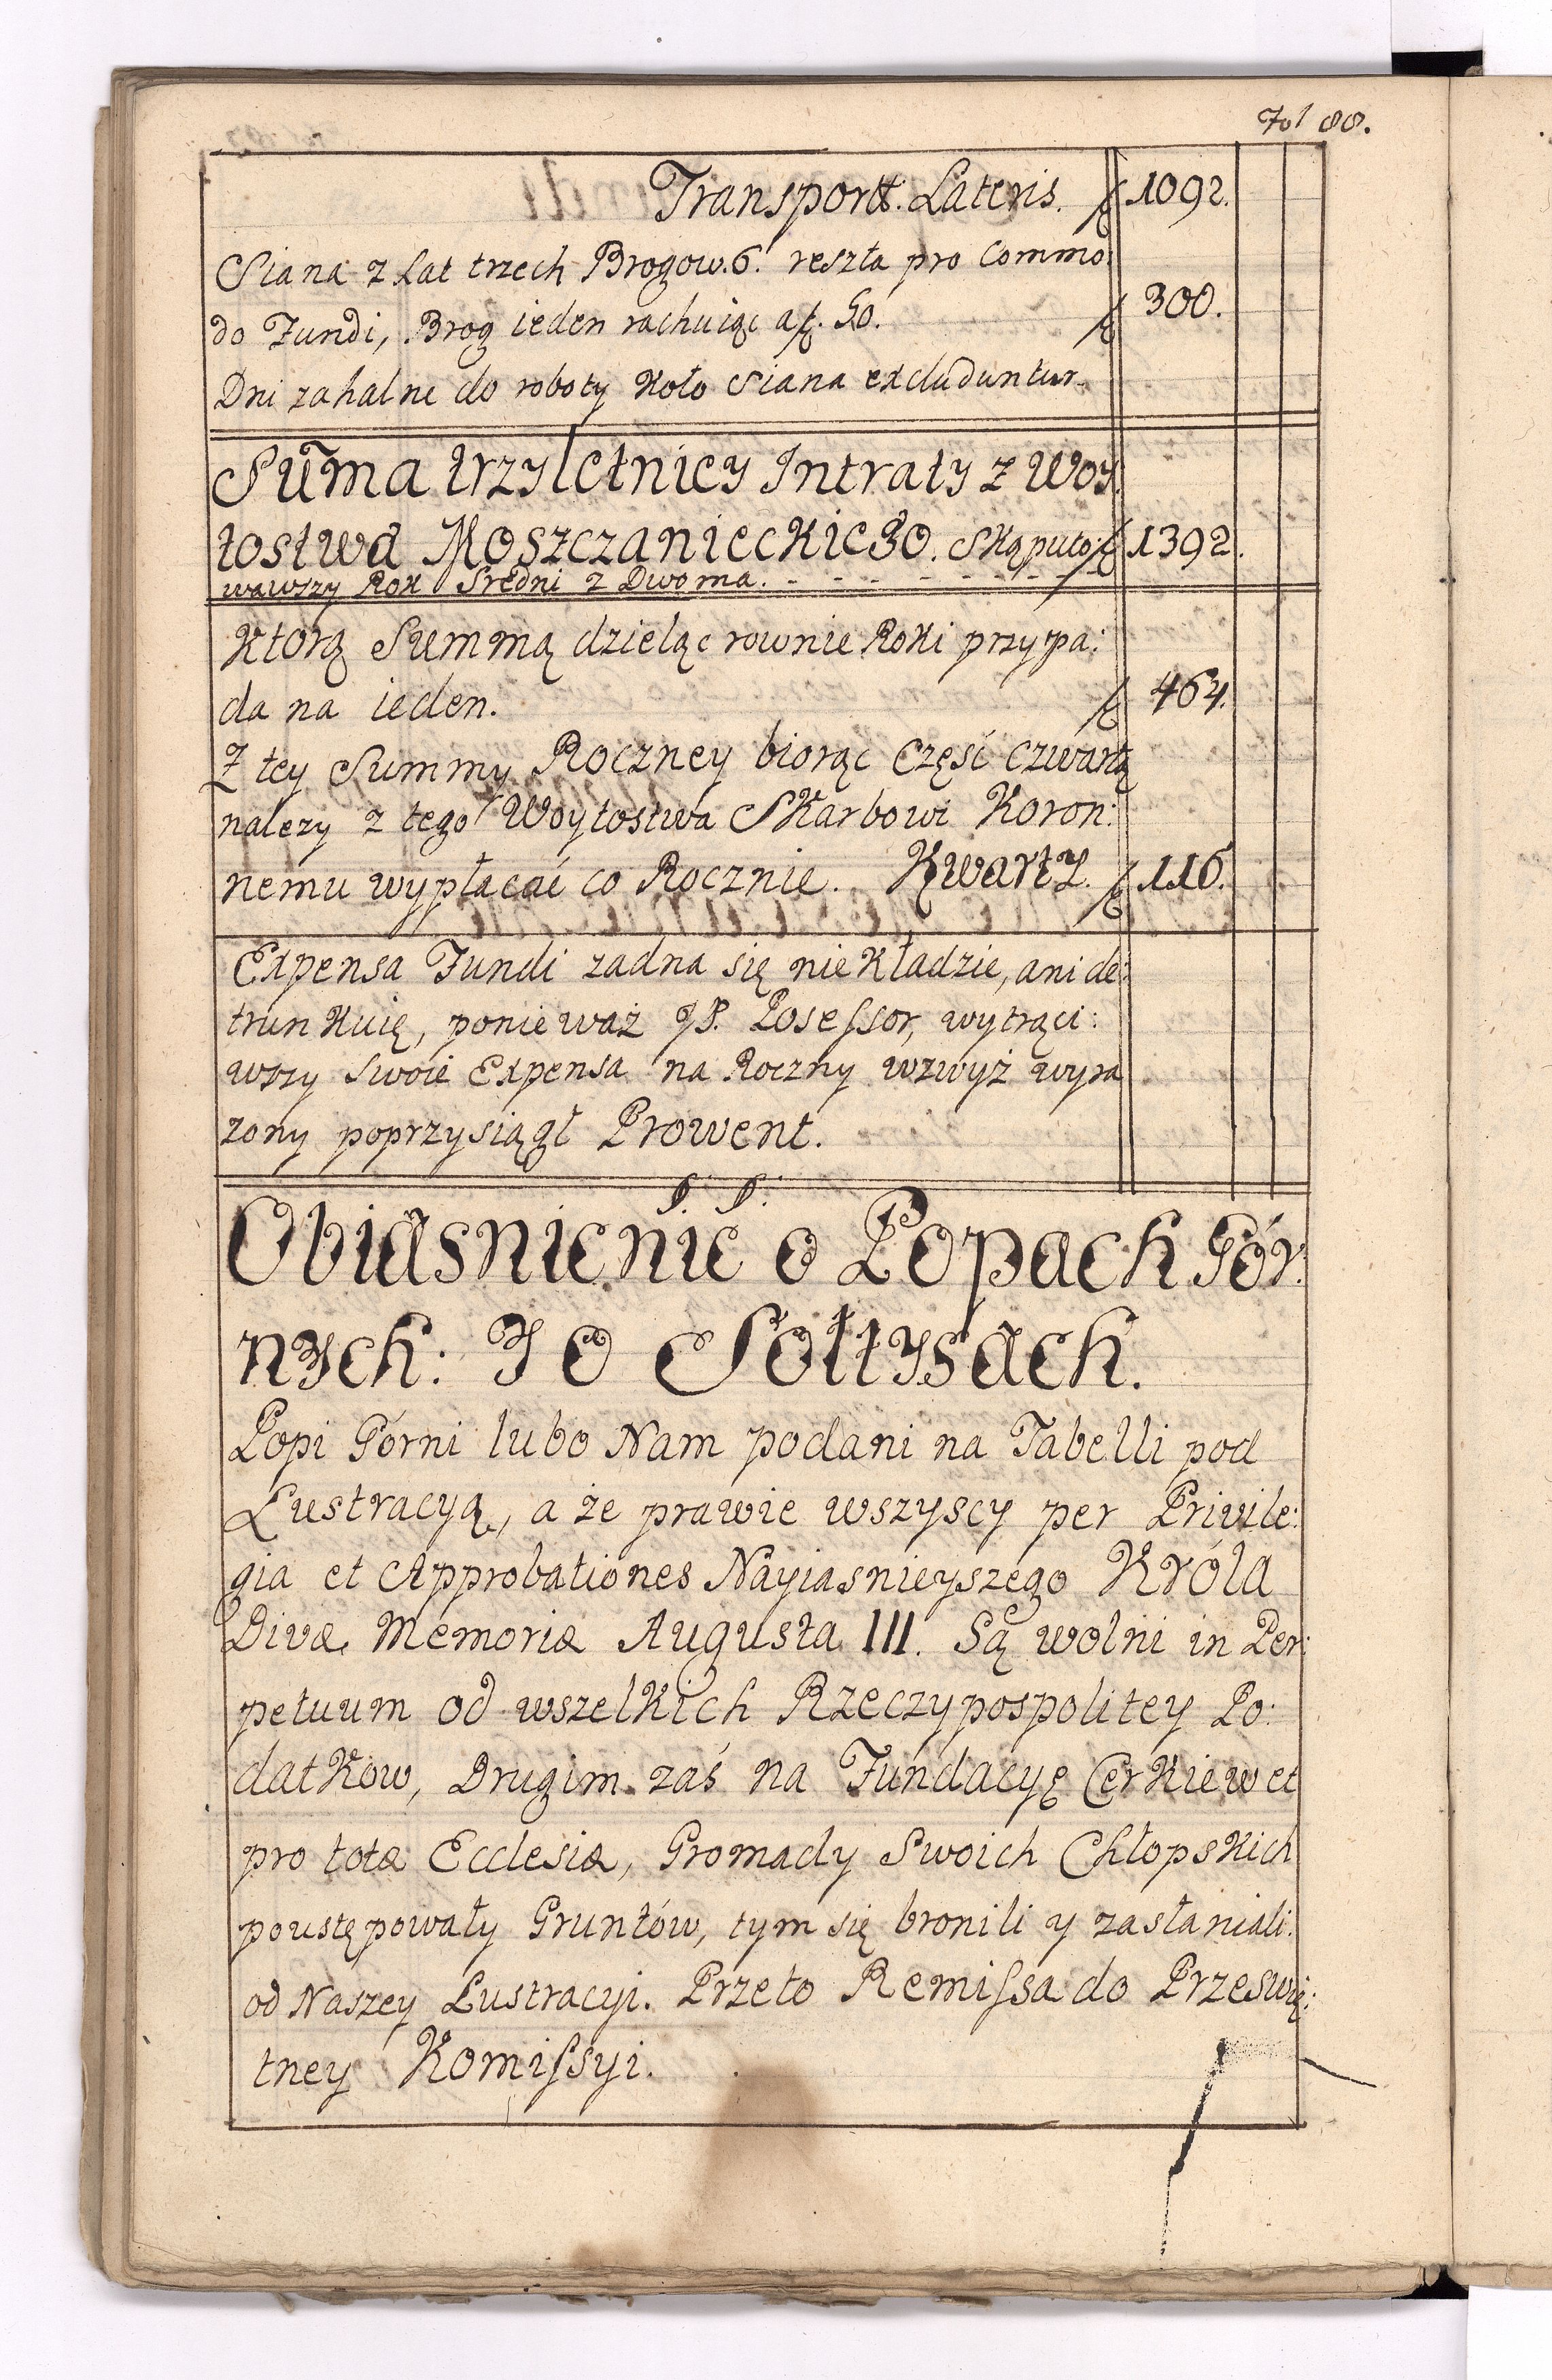 Fol 88.
Transportt. Lateris. f 1092.
Siana z Lat trzech Brogow. 6. reszta pro Commo:
do Fundi, Brog ieden rachuiąc a f. 50. f 300.
Dni zahalne do roboty Koło Siana excluduntur.
Sum̃a trzyletnicy Intraty z Woy:
tostwa Moszczanieckiego. Skąputo: f 1392.
wawszy Rok Sredni z Dwoma. - - - - - - - -
Ktorą Summą dzieląc rownie Roki przypa:
da na ieden. f 464.
Z tey Summy Roczney biorąc Część Czwartą
nalezy z tego Woytostwa Skarbowi Koron:
nemu wypłacać co Rocznie. Kwarty. f 116.
Expensa Fundi zadna się nie Kładzie, ani de:
trunkuię, ponieważ JP. Posessor, wytrąci:
wszy Swoie Expensa na Roczny wzwyż wyra
zony poprzysiągł Prowent.
Obiasnienie o Popach Gór:
nych: I O Sołtysach.
Popi Górni lubo Nam podani na Tabelli pod
Lustracyą, a że prawie wszyscy per Privile:
gia et Approbationes Nayiasnieyszego Króla
Divæ Memoriæ Augusta III. Są wolni in Per:
petuum od wszelkich Rzeczypospolitey Po:
datkow, Drugim zaś na Fundacyę Cerkiew et
pro tota Ecclesia, Gromady Swoich Chłopskich
poustępowały Gruntów, tym się bronili y zasłaniali
od Naszey Lustracyi. Przeto Remissa do Przeswię:
tney Komissyi.